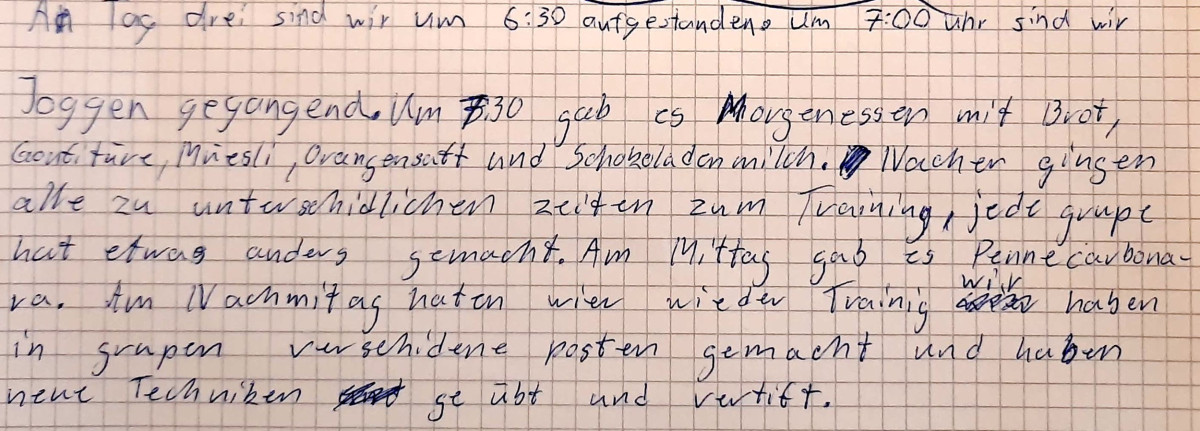 An Tag drei sind wir um 6:30 aufgestanden. Um 7:00 Uhr sind wir
Joggen gegangend. Um 7:30 gab es Morgenessen mit Brot,
Gonfitüre, Müesli, Orangensatt und Schokoladenmilch. Nacher gingen
alle zu unterschidlichen zeiten zum Training, jede grupe
hat etwas anders gemacht. Am Mittag gab es Pennecarbona-
ra. Am Nachmitag haten wier wieder Trainig wir haben
in grupen verschidene posten gemacht und haben
neue Techniken ge übt und vertift.